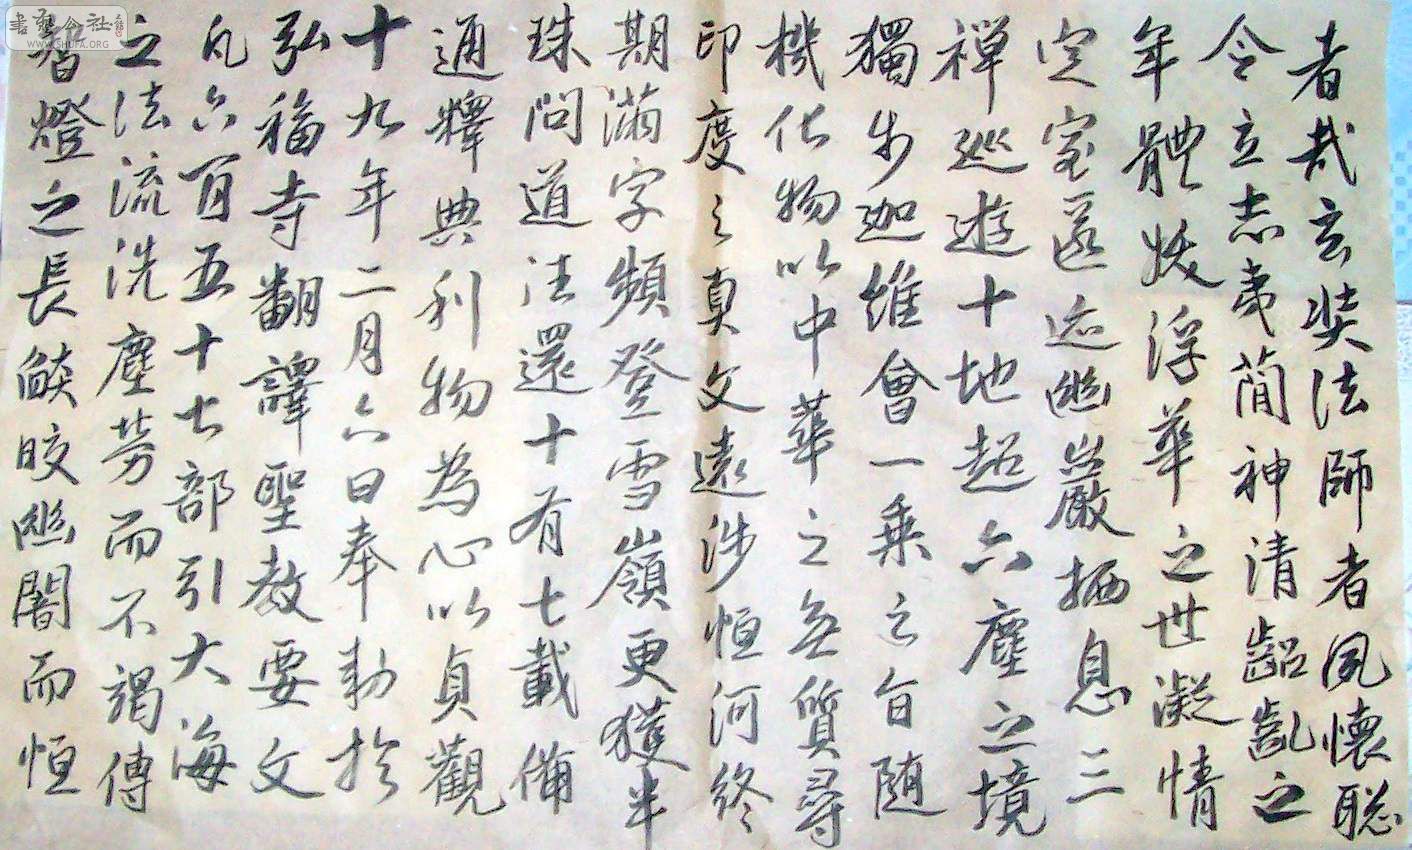 書藝公社
WWW.SHUFA.ORG
者哉玄奘法師者夙懷聰
令立志夷簡神清齠齔之
年體拔浮華之世凝情
定室匿迹幽巖栖息三
禪巡遊十地超六塵之境
獨步迦維會一乘之旨随
機化物以中華之無質尋
印度之真文遠涉恒河終
期滿字頻登雪嶺更獲半
珠問道往還十有七載備
通釋典利物為心以貞觀
十九年二月六日奉勅於
弘福寺翻譯聖教要文
凡六百五十七部引大海
之法流洗塵勞而不竭傳
智燈之長燄皎幽闇而恒